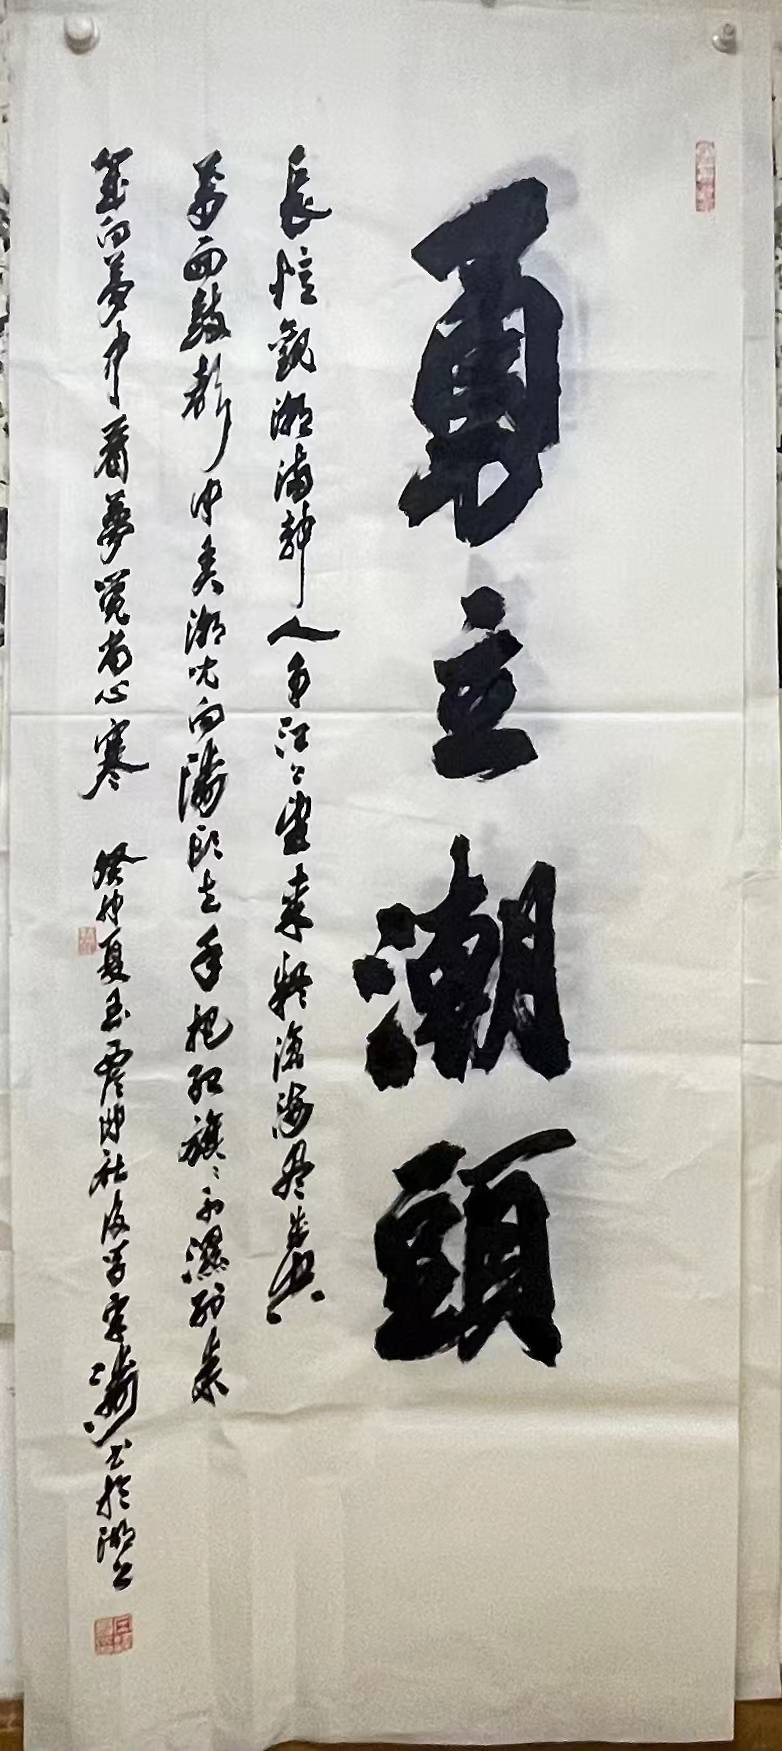 勇立潮頭
長憶觀潮滿郭人争江上望來疑滄海尽成空
萬面鼓聲中弄潮兒向濤頭立手把紅旗々不濕别來
幾向夢中看夢覺尚心寒 癸卯夏 社後學 濤书於湖上